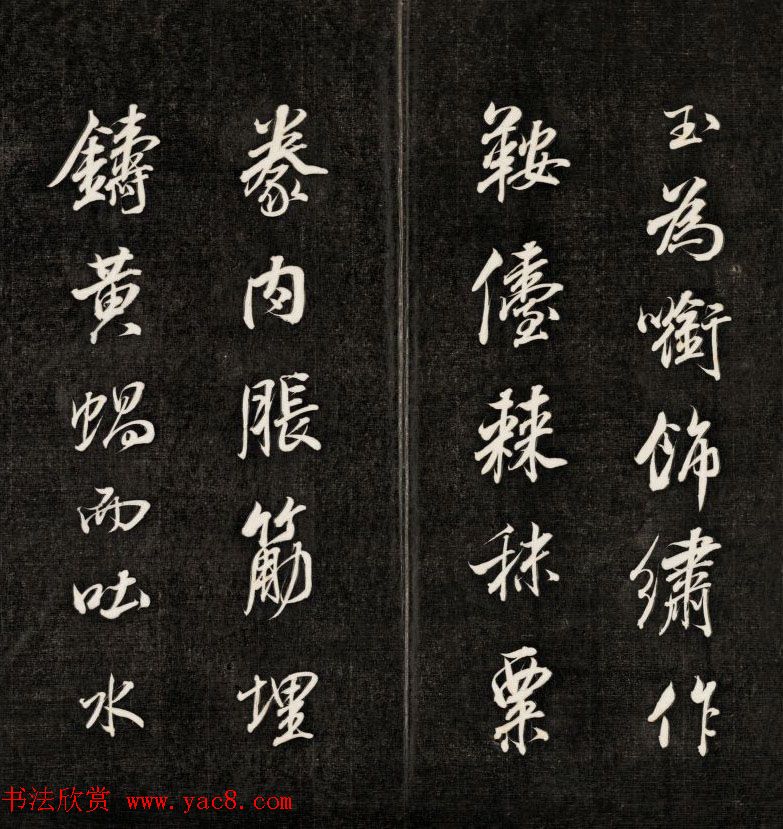 玉為㘅飾繡作
鞍儓棘秣粟
豢肉脹筋埋
鑄黃蝸而吐水
书法欣赏 www.yac8.com